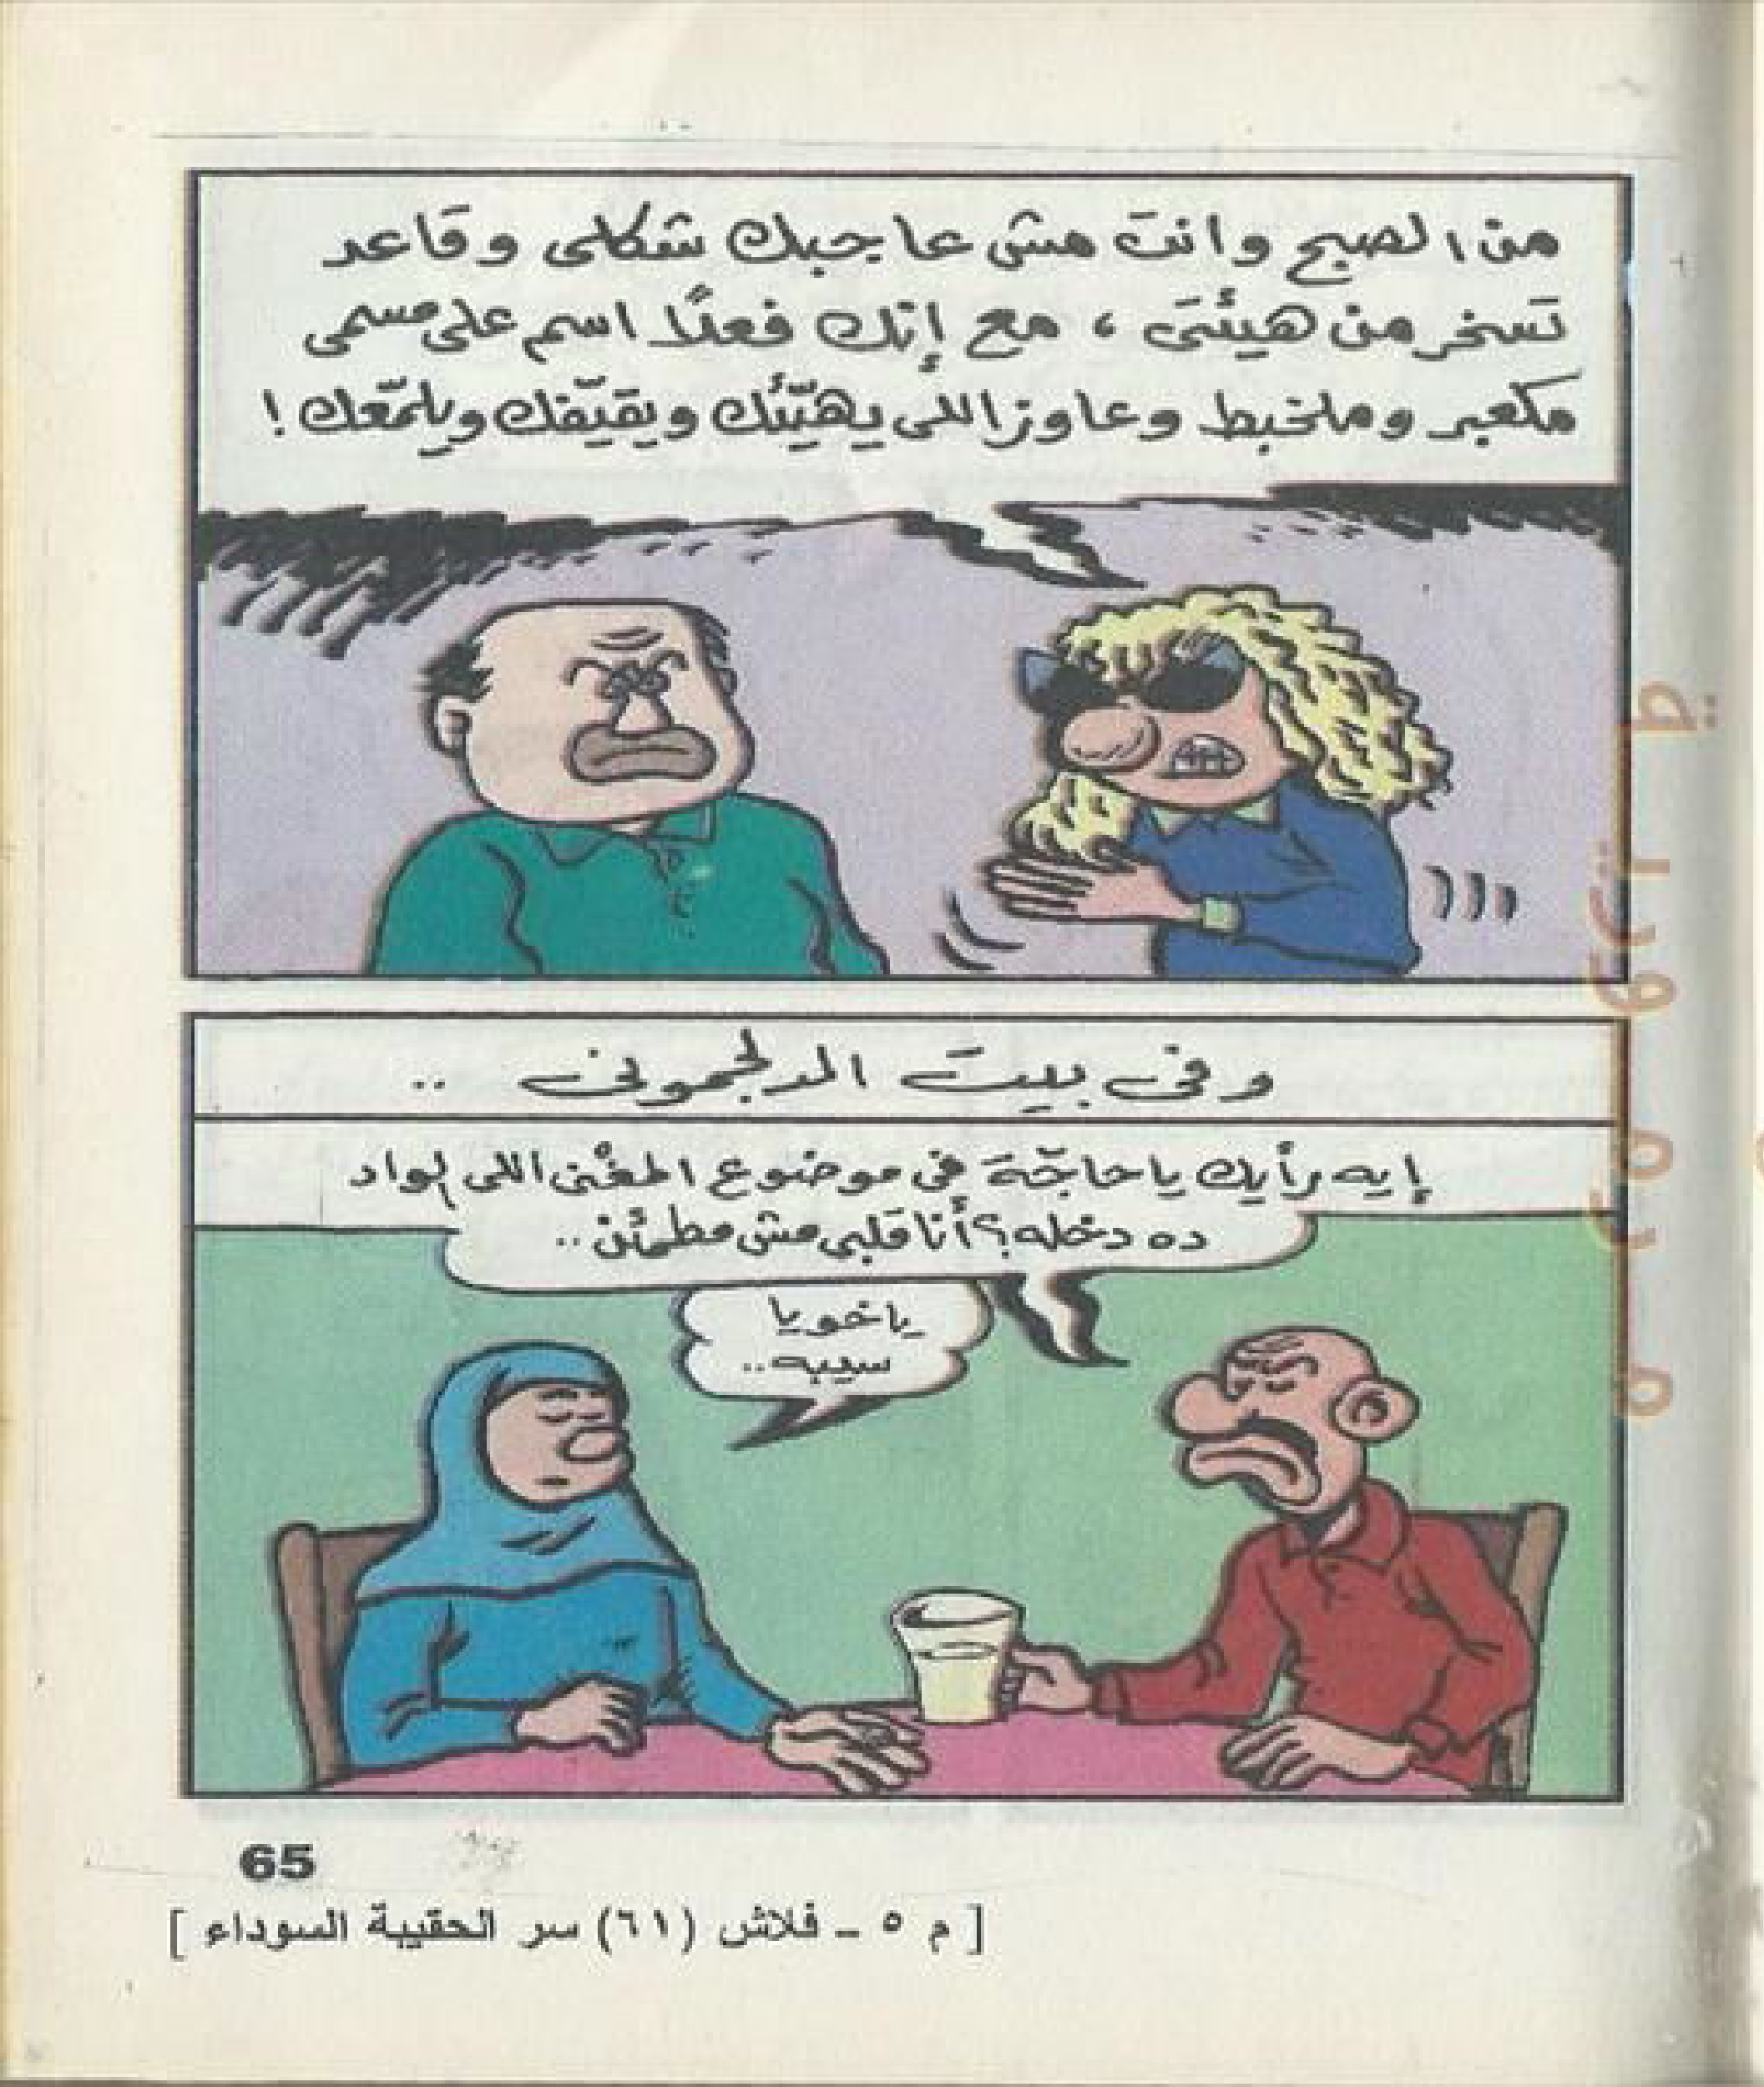 من الصبح وانت مش عاجبك شكلى وقاعد
تسخر من هيئتى ، مع إنك فعلًا اسم على مسمى
مكعبر وملخبط وعاوز اللى يهيّئك ويقيّفك ويلمّعك !
وفى بيت الدلجمونى ..
إيه رأيك ياحاجّة فى موضوع المغْنى اللى الواد
ده دخله؟ أنا قلبى مش مطمئن ..
ياخويا
سيبه ..
65
[ م ٥ ـ فلاش (٦١) سر الحقيبة السوداء ]